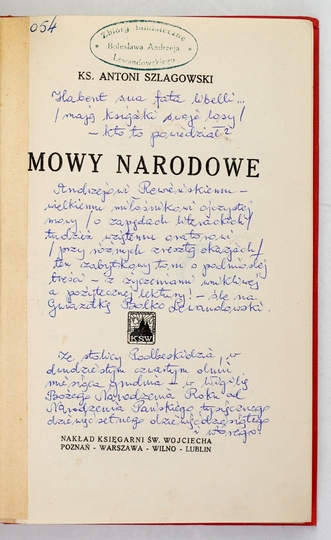 054
Zbiory humanistyczne
Bolesława Andrzeja
Lewandowskiego
KS. ANTONI SZLAGOWSKI
Habent sua fata libelli...
/ mają książki swoje losy /
- kto to powiedział?
MOWY NARODOWE
Andrzejowi Rewińskiemu -
wielkiemu miłośnikowi ojczystej
mowy / o zapędach literackich /
tudzież wziętemu oratorowi
/ przy różnych zresztą okazjach /
ten zabytkowy tom o podniosłej
treści - z życzeniami wnikliwej
a pożytecznej lektury! - śle na
Gwiazdkę Bolko Lewandowski.
KSW
Ze stolicy Podbeskidzia, w
dwudziestym czwartym dniu
miesiąca grudnia - w Wigilię
Bożego Narodzenia Roku od
Narodzenia Pańskiego tysięcznego
dziewięćsetnego dziewięćdziesiątego
NAKŁAD KSIĘGARNI ŚW. WOJCIECHA
POZNAŃ - WARSZAWA - WILNO - LUBLIN